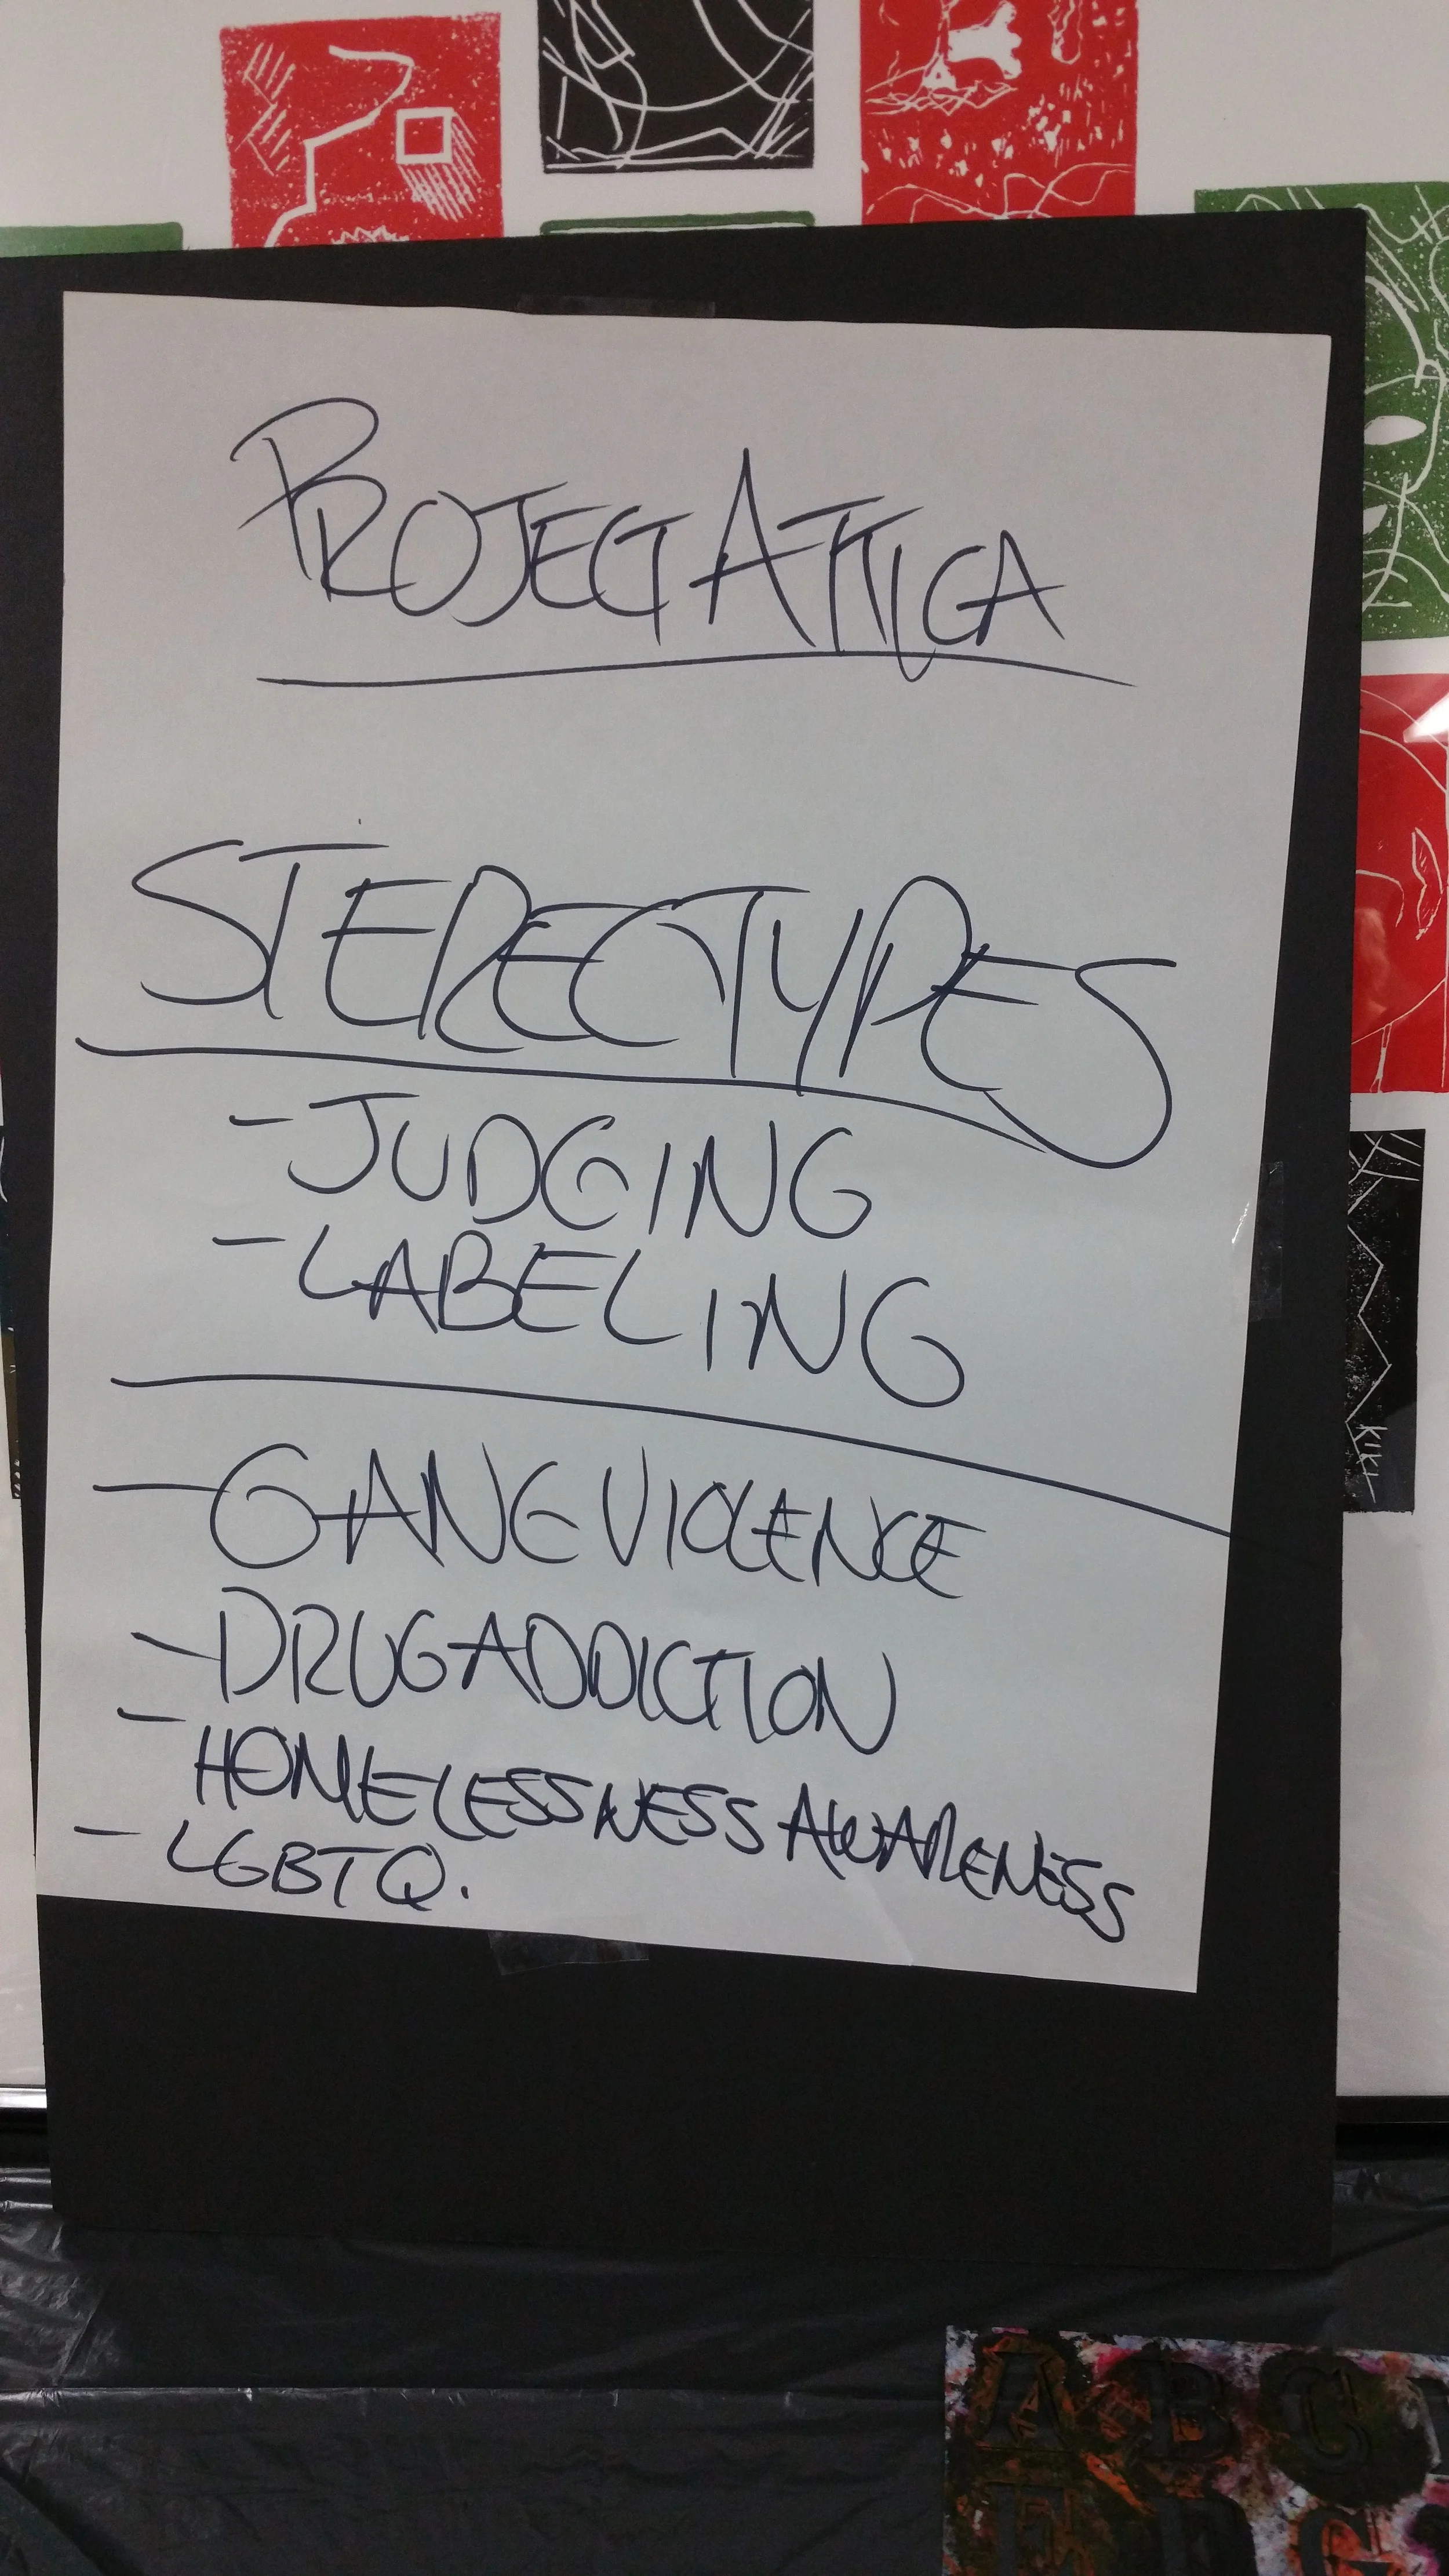 PROJECT ATTICA
STEREOTYPES
- JUDGING
- LABELING
- GANG VIOLENCE
- DRUG ADDICTION
- HOMELESSNESS AWARENESS
- LGBTQ.
KIKI
A B C
E F G